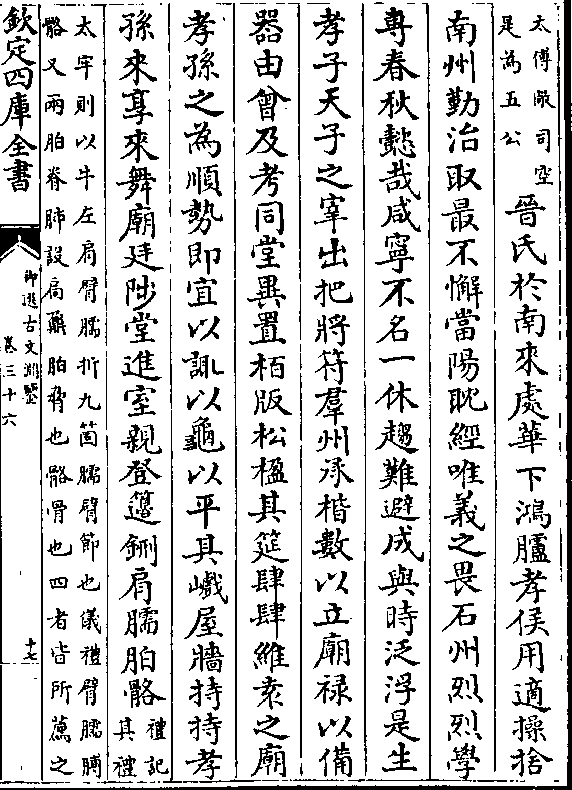 太傅敞司空
是為五公
晉氏於南來處華下鴻臚孝侯用適操捨
南州勤治取最不懈當陽耽經唯義之畏石州烈烈學
專春秋懿哉咸寧不名一休趨難避成與時泛浮是生
孝子天子之宰出把將符羣州承楷數以立廟祿以備
器由曾及考同堂異置柏版松楹其筵肆肆維袁之廟
孝孫之為順勢即宜以諏以龜以平其巇屋牆持持孝
孫來享來舞廟廷陟堂進室親登籩鉶肩臑胉骼
禮記
其禮
太牢則以牛左肩臂臑折九箇臑臂節也儀禮臂臑膊
骼又兩胉脊肺設扃鼏胉脅也骼骨也四者皆所薦之
欽定四庫全書
御選古文淵鑒
卷三十六
十七